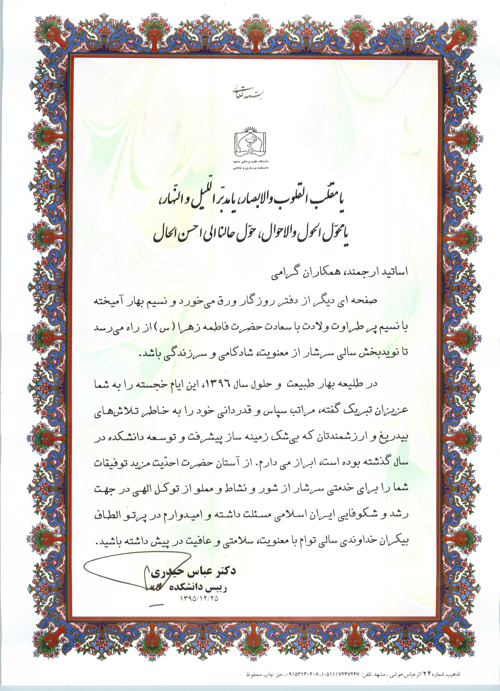 بسمه تعالی
دانشگاه علوم پزشکی مشهد
دانشکده پرستاری و مامایی
یا مقلب القلوب والابصار، یا مدبّر اللّیل و النّهار،
یا محوّل الحول والاحوال، حوّل حالنا الی احسن الحال
اساتید ارجمند، همکاران گرامی
صفحه ای دیگر از دفتر روزگار ورق می‌خورد و نسیم بهار آمیخته
با نسیم پر طراوت ولادت با سعادت حضرت فاطمه زهرا (س) از راه می‌رسد
تا نویدبخش سالی سرشار از معنویت، شادکامی و سرزندگی باشد.
در طلیعه بهار طبیعت و حلول سال ۱۳۹۶، این ایام خجسته را به شما
عزیزان تبریک گفته، مراتب سپاس و قدردانی خود را به خاطر تلاش‌های
بیدریغ و ارزشمندتان که بی‌شک زمینه ساز پیشرفت و توسعه دانشکده در
سال گذشته بوده است، ابراز می دارم. از آستان حضرت احدّیت مزید توفیقات
شما را برای خدمتی سرشار از شور و نشاط و مملو از توکل الهی در جهت
رشد و شکوفایی ایران اسلامی مسئلت داشته و امیدوارم در پرتو الطاف
بیکران خداوندی سالی توام با معنویت، سلامتی و عافیت در پیش داشته باشید.
دکتر عباس حیدری
رییس دانشکده
۱۳۹۵/۱۲/۲۵
تذهیب شماره ۲۴ اثر عباس خوشی - مشهد تلفن: ۷۲۴۷۲۴۷ (۰۵۱۱)، ۰۹۱۵۳۱۳۰۴۰۸ حق چاپ محفوظ